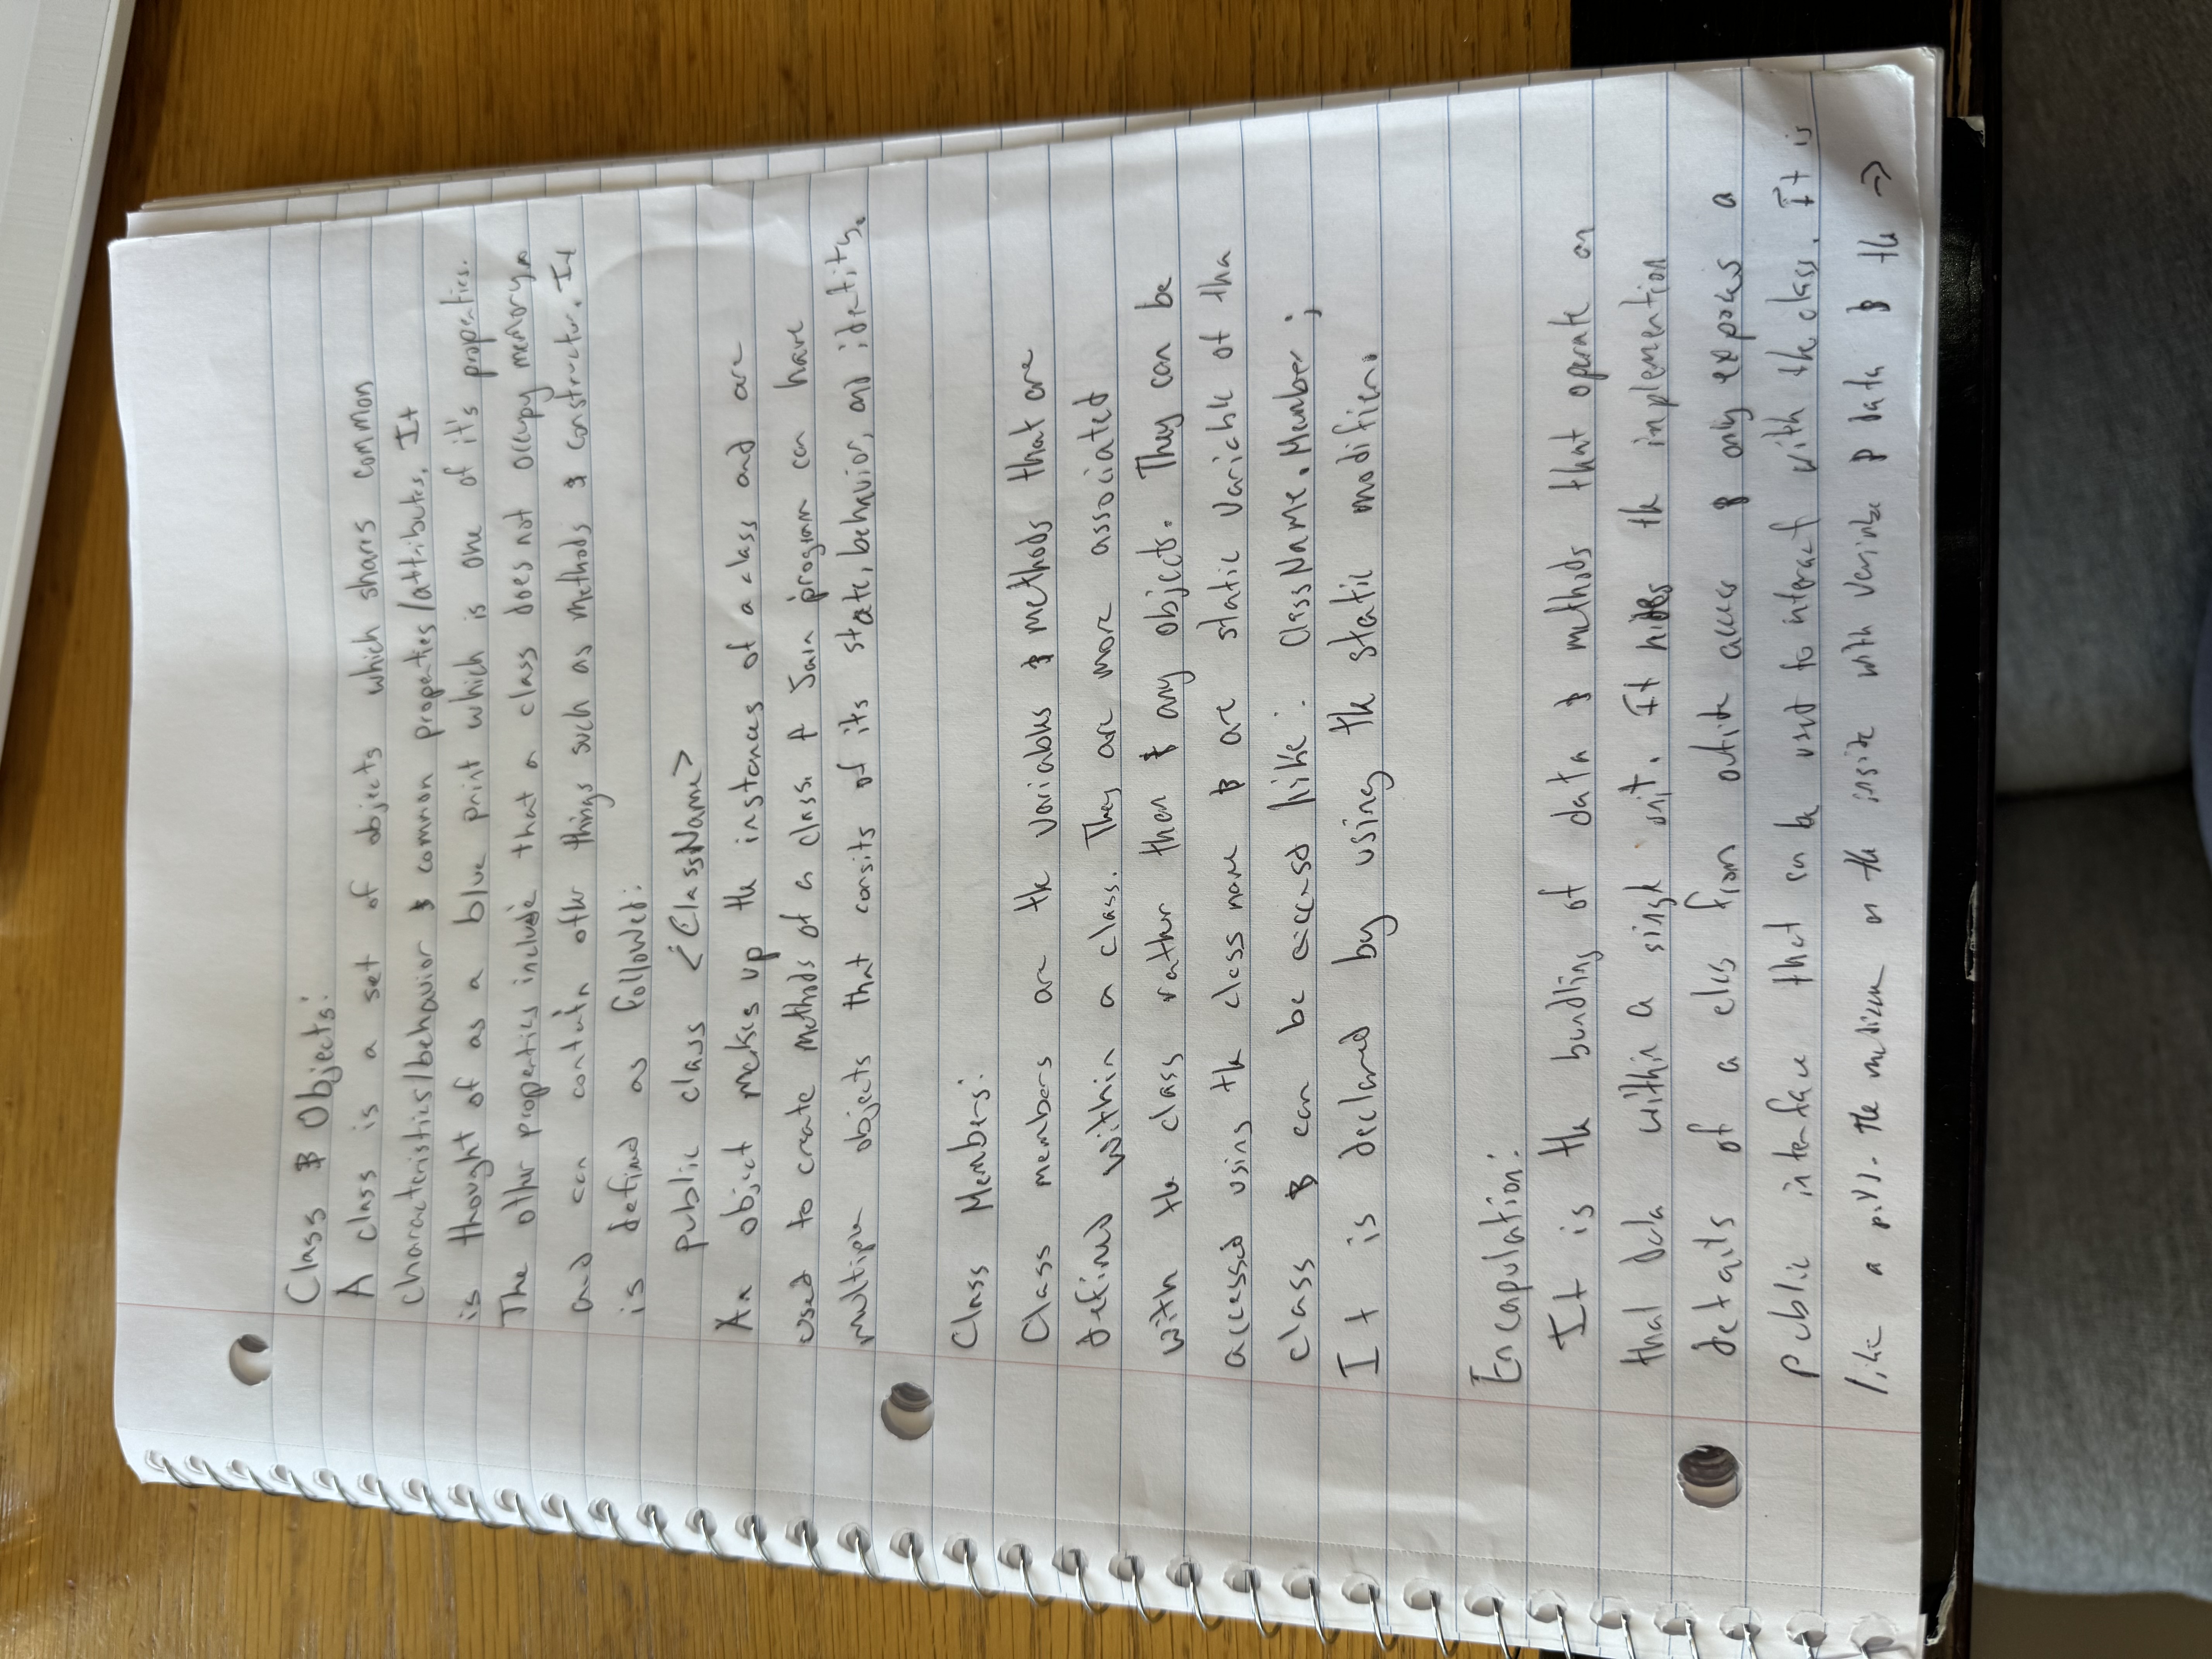 Class & Objects:
A class is a set of objects which shares common
characteristics/behavior & common properties/attributes. It
is thought of as a blue print which is one of it's properties.
The other properties include that a class does not occupy memory
and can contain other things such as methods & constructor. It
is defined as followed:
public class <ClassName>
An object makes up the instances of a class and are
used to create methods of a class. A Java program can have
multiple objects that consits of its state, behavior, and identity.
Class Members:
Class members are the variables & methods that are
defined within a class. They are more associated
with the class rather than any objects. They can be
accessed using the class name & are static variable of tha
class & can be accessd like: ClassName.Member;
It is declared by using the static modifier.
Encapulation:
It is the bundling of data & methods that operate on
that data within a single unit. It hides the implemention
details of a class from outside access & only exposes a
public interface that can be used to interact with the class. It is
like a pill. The medicine on the inside with variable & data & the ⇒